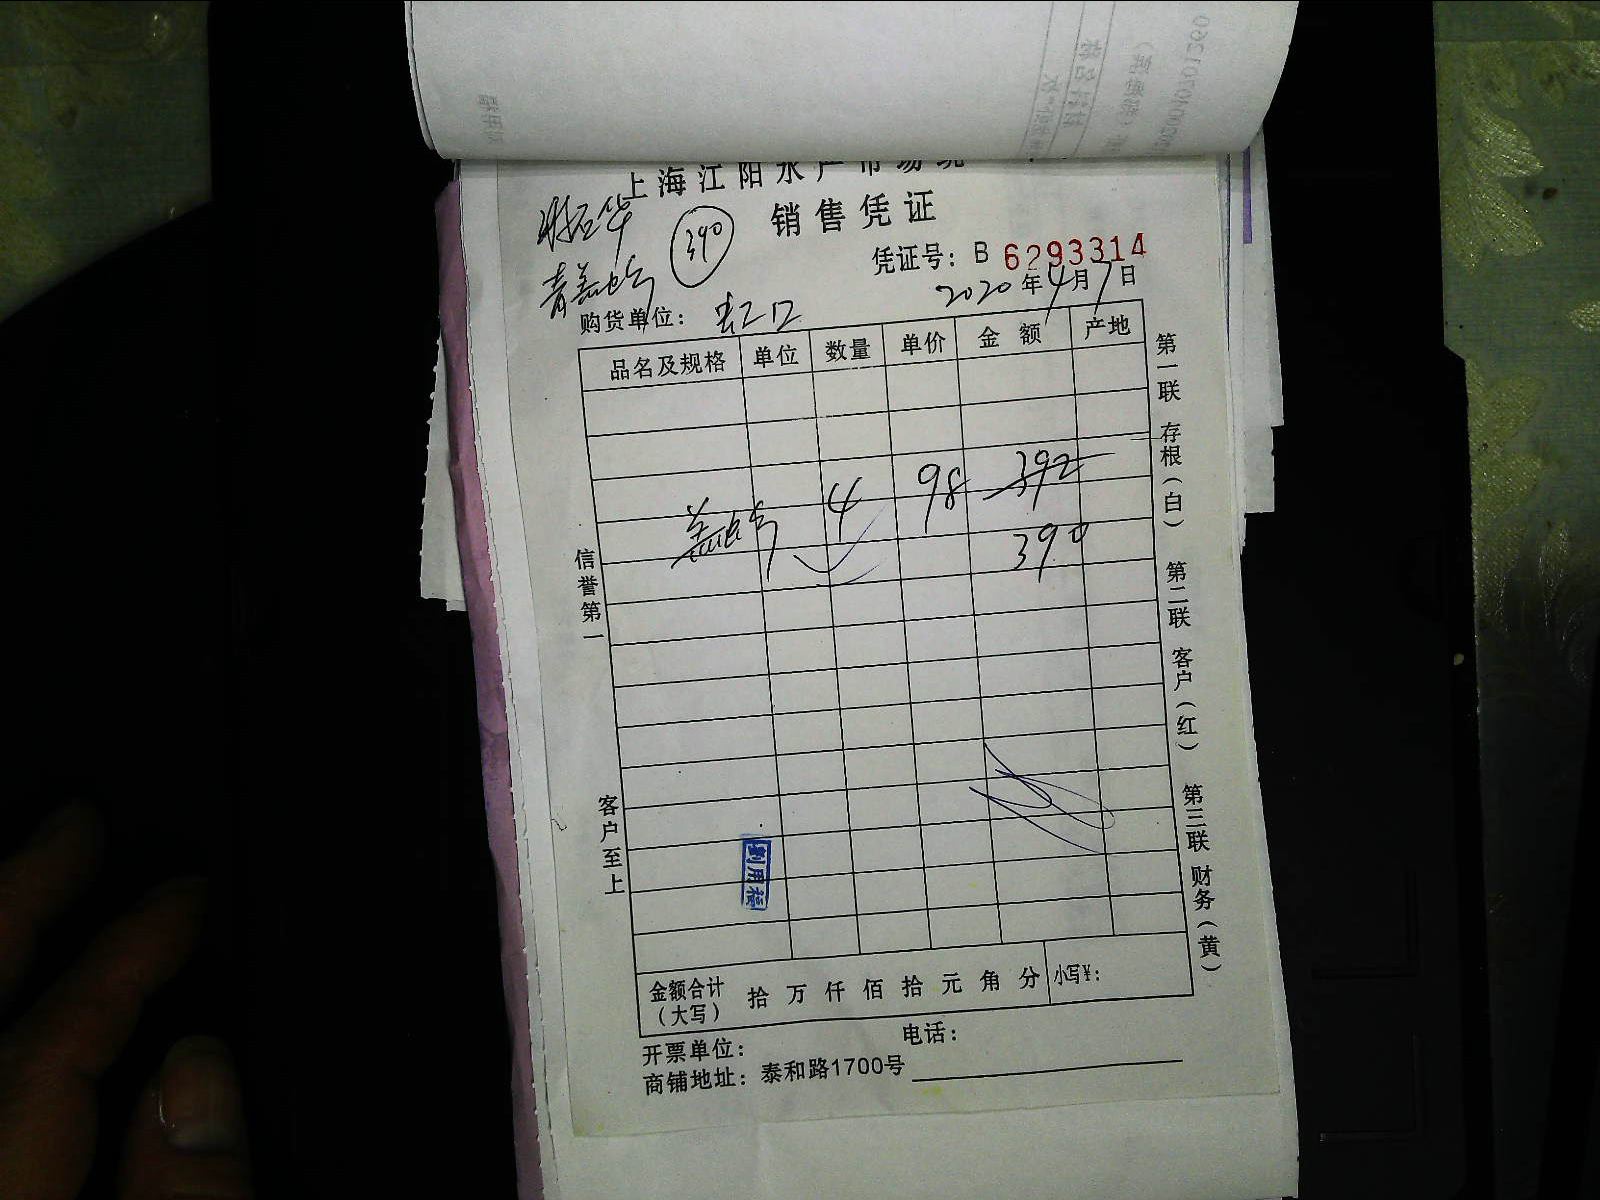 上海江阳水产市场
销售凭证
390
凭证号：B 6293314
2020年4月7日
购货单位：虹口
品名及规格 单位 数量 单价 金额 产地
4 98 392
390
信誉第一
客户至上
第一联 存根（白） 第二联 客户（红） 第三联 财务（黄）
金额合计（大写） 拾 万 仟 佰 拾 元 角 分 小写¥：
开票单位： 电话：
商铺地址：泰和路1700号